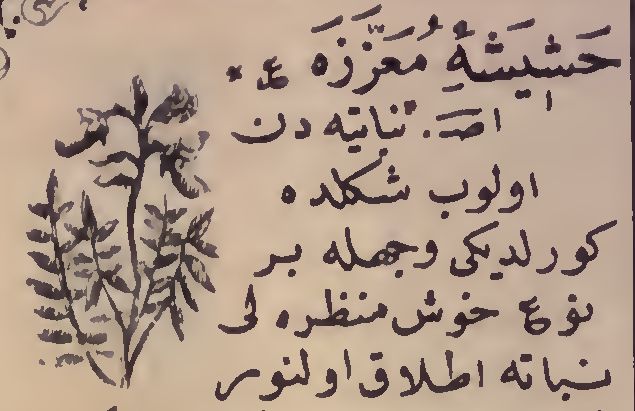 حَشِيشَةِ مُعَزَّزَه ع *
اصـ. نباتیه دن
اولوب شکلده
کورلدیکی وجهله بر
نوع خوش منظره لی
نباته اطلاق اولنور